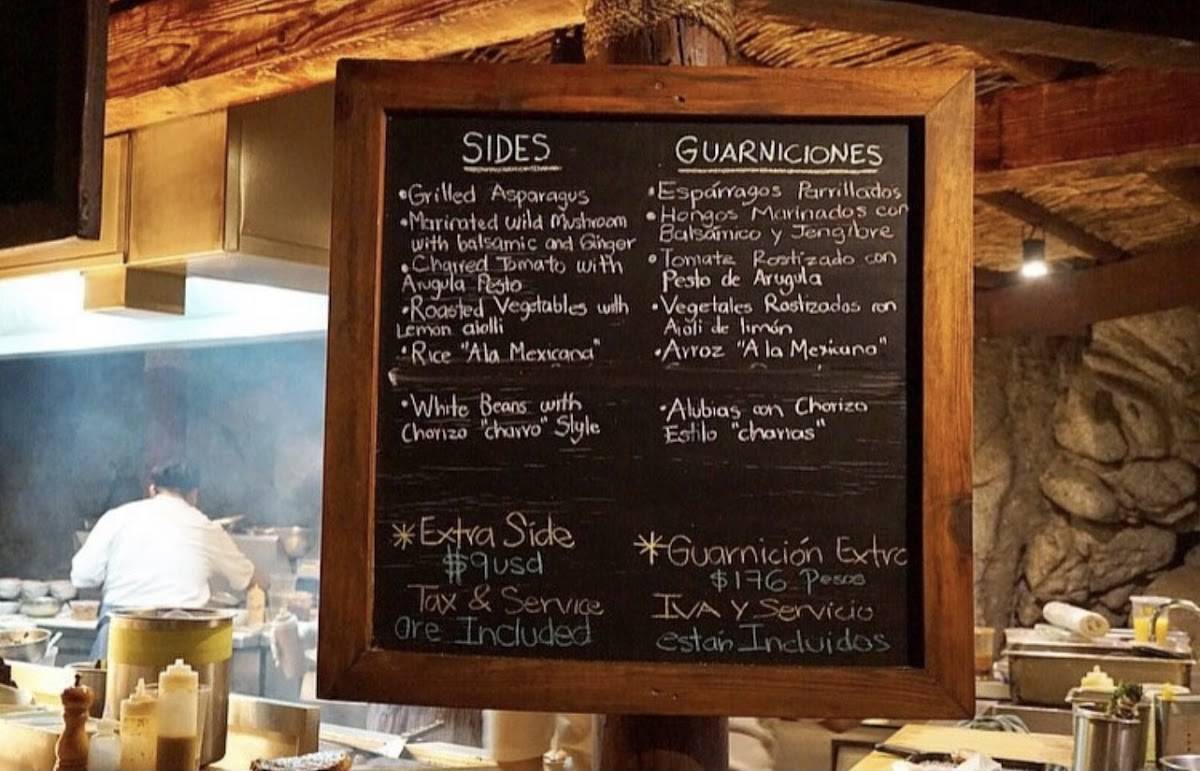 SIDES
•Grilled Asparagus
•Marinated Wild Mushroom
with balsamic and Ginger
•Charred Tomato with
Arugula Pesto
•Roasted Vegetables with
Lemon aiolli
•Rice "A la Mexicana"
•White Beans with
Chorizo "charro" Style
*Extra Side
$9usd
Tax & Service
are Included
GUARNICIONES
•Espárragos Parrillados
•Hongos Marinados con
Balsámico y Jengibre
•Tomate Rostizado con
Pesto de Arugula
•Vegetales Rostizados con
Aioli de limón
•Arroz "A la Mexicana"
•Alubias con Chorizo
Estilo "charras"
*Guarnición Extra
$176 Pesos
IVA Y Servicio
están Incluidos